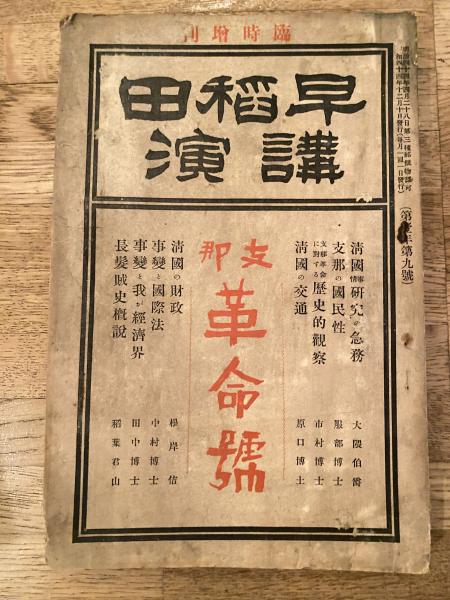 臨時增刊
早稻田
講演
明治四十四年四月二十八日第三種郵便物認可
明治四十四年十二月十日發行(每月一回一日發行)
(第壹年第九號)
清國事情研究の急務 大隈伯爵
支那の國民性 服部博士
支那革命に對する歷史的觀察 市村博士
清國の交通 原口博士
支那革命號
清國の財政 根岸佶
事變と國際法 中村博士
事變と我が經濟界 田中博士
長髮賊史槪說 稻葉君山